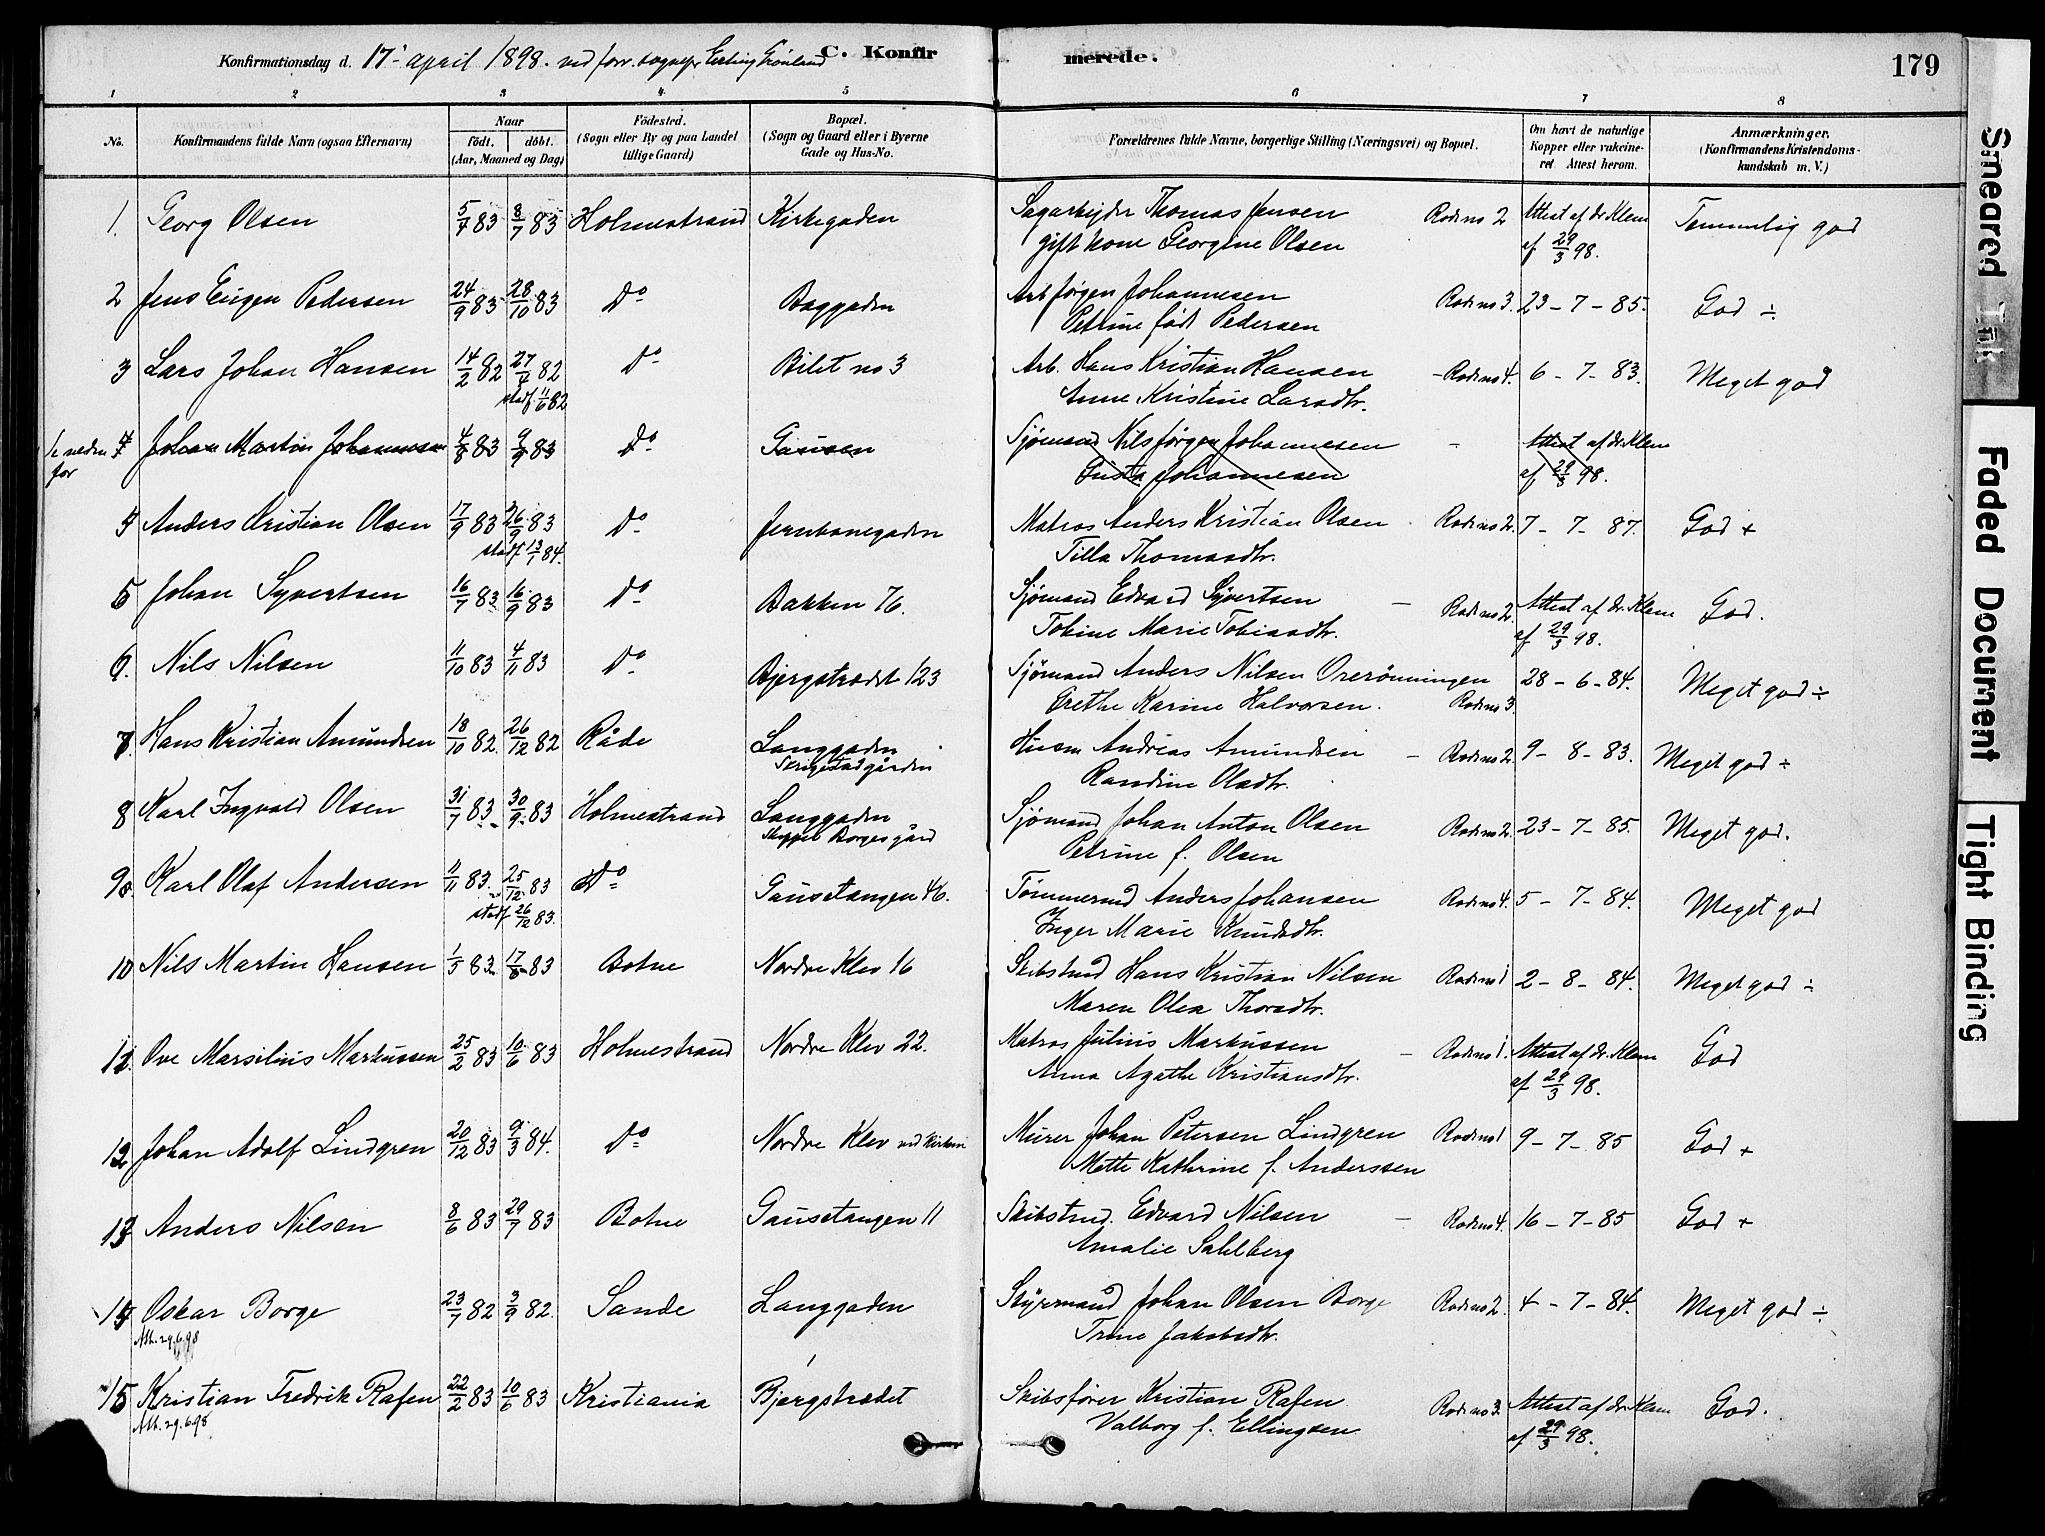 Konfirmationsdag d. 17. april 1898. ved forr. sognepr Erling Grönland C. Konfirmerede. 179
1 2 3 4 5 6 7 8
No. Konfirmandens fulde Navn (ogsaa Efternavn) Naar födt. döbt. (Aar, Maaned og Dag) Födested. (Sogn eller By og paa Landet tillige Gaard) Bopæl. (Sogn og Gaard eller i Byerne Gade og Hus-No. Forældrenes fulde Navne, borgerlige Stilling (Næringsvei) og Bopæl. Om havt de naturlige Kopper eller vakcineret. Attest herom. Anmærkninger. (Konfirmandens Kristendomskundskab m. V.)
1. Georg Olsen 5/4 83 8/7 83 Holmestrand Kirkegaden Sagarbejdr Thomas Jensen Rode no 2 Attest af dr. Klem Temmelig god
gift kone Georgine Olsen af 29/3 98.
2 Jens Eugen Pedersen 24/9 83 28/10 83 Do Baggaden Arb Jörgen Johannesen Rode no 3. 23-7-85. God ÷
Petrine födt Pedersen
3 Lars Johan Hansen 14/2 82 27/4 82 Do Bilet no 3 Arb. Hans Kristian Hansen - Rode no 4. 6-7-83. Meget god
stadf. 11/6 82 Anne Kristine Larsdtr.
neden for 4 Johan Martin Johannesen 4/8 83 9/9 83 Do Gausen Sjömand Nils Jörgen Johannesen - Attest af dr. Klem
Gusta Johannesen af 29/3 98.
4 Anders Kristian Olsen 17/9 83 26/9 83 Do Jernbanegaden Matros Anders Kristian Olsen Rode no 2. 7-7-87. God +
stadf 13/1 84. Tilla Thomasdtr.
5 Johan Syvertsen 16/7 83 16/9 83 Do Bakken 76. Sjömand Edvard Syvertsen - Rode no 2. Attest af dr. Klem God.
Tobine Marie Tobiasdtr. af 29/3 98.
6. Nils Nilsen 11/10 83 4/11 83 Do Bjergstrædet 123 Sjömand Anders Nilsen Orerönningen 28-6-84. Meget god ÷
Grethe Karine Halvorsen. Rode no 3.
7. Hans Kristian Amundsen 18/10 82. 26/12 82 Råde Langgaden Husm Andreas Amundsen - Rode no 2. 9-8-83. Meget god ÷
Skrigestadgården Randine Olsdtr.
8 Karl Ingvald Olsen 31/7 83 30/9 83 Holmestrand Langgaden Sjömand Johan Anton Olsen Rode no 2. 23-7-85. Meget god.
Skipper Borges gård Petrine f. Olsen
9. Karl Olaf Andersen 11/11 83. 25/12 83 Do Gausetangen 46. Tömmermd Anders Johansen Rode no 4. 5-7-84. Meget god
stadf 26/12 83. Inger Marie Knudsdtr.
10 Nils Martin Hansen 1/5 83. 17/6 83 Botne Nordre Klev 16 Skibstmd Hans Kristian Nilsen Rode no 1 2-8-84. Meget god ÷
Maren Olea Thorsdtr.
11. Ove Marsilius Markussen 25/2 83 10/6 83 Holmestrand Nordre Klev 22. Matros Julius Markussen - Rode no 1. Attest af dr. Klem God
Anna Agathe Kristiansdtr. af 29/3 98.
12 Johan Adolf Lindgren 20/12 83 9/3 84. Do Nordre Klev ved kirken Murer Johan Petersen Lindgren Rode no 1 9-7-85 God +
Mette Kathrine f. Anderssen
13 Anders Nilsen 8/6 83 29/7 83 Botne Gausetangen 11 Skibstmd. Edvard Nilsen - Rode no 4. 16-7-85 God +
Amalie Sahlberg
14 Oskar Borge 23/7 82 3/9 82. Sande Langgaden Styrmand Johan Olsen Borge Rode no 2. 4-7-84. Meget god ÷
Att. 29.6.98 Trine Jakobsdtr.
15 Kristian Fredrik Rafen 22/2 83 10/6 83 Kristiania Bjergstrædet Skibsförer Kristian Rafen Rode no 3. Attest af dr. Klem God.
Att. 29.6.98 Valborg f. Ellingsen af 29/3 98.
Smeared Ink
Faded Document
Tight Binding